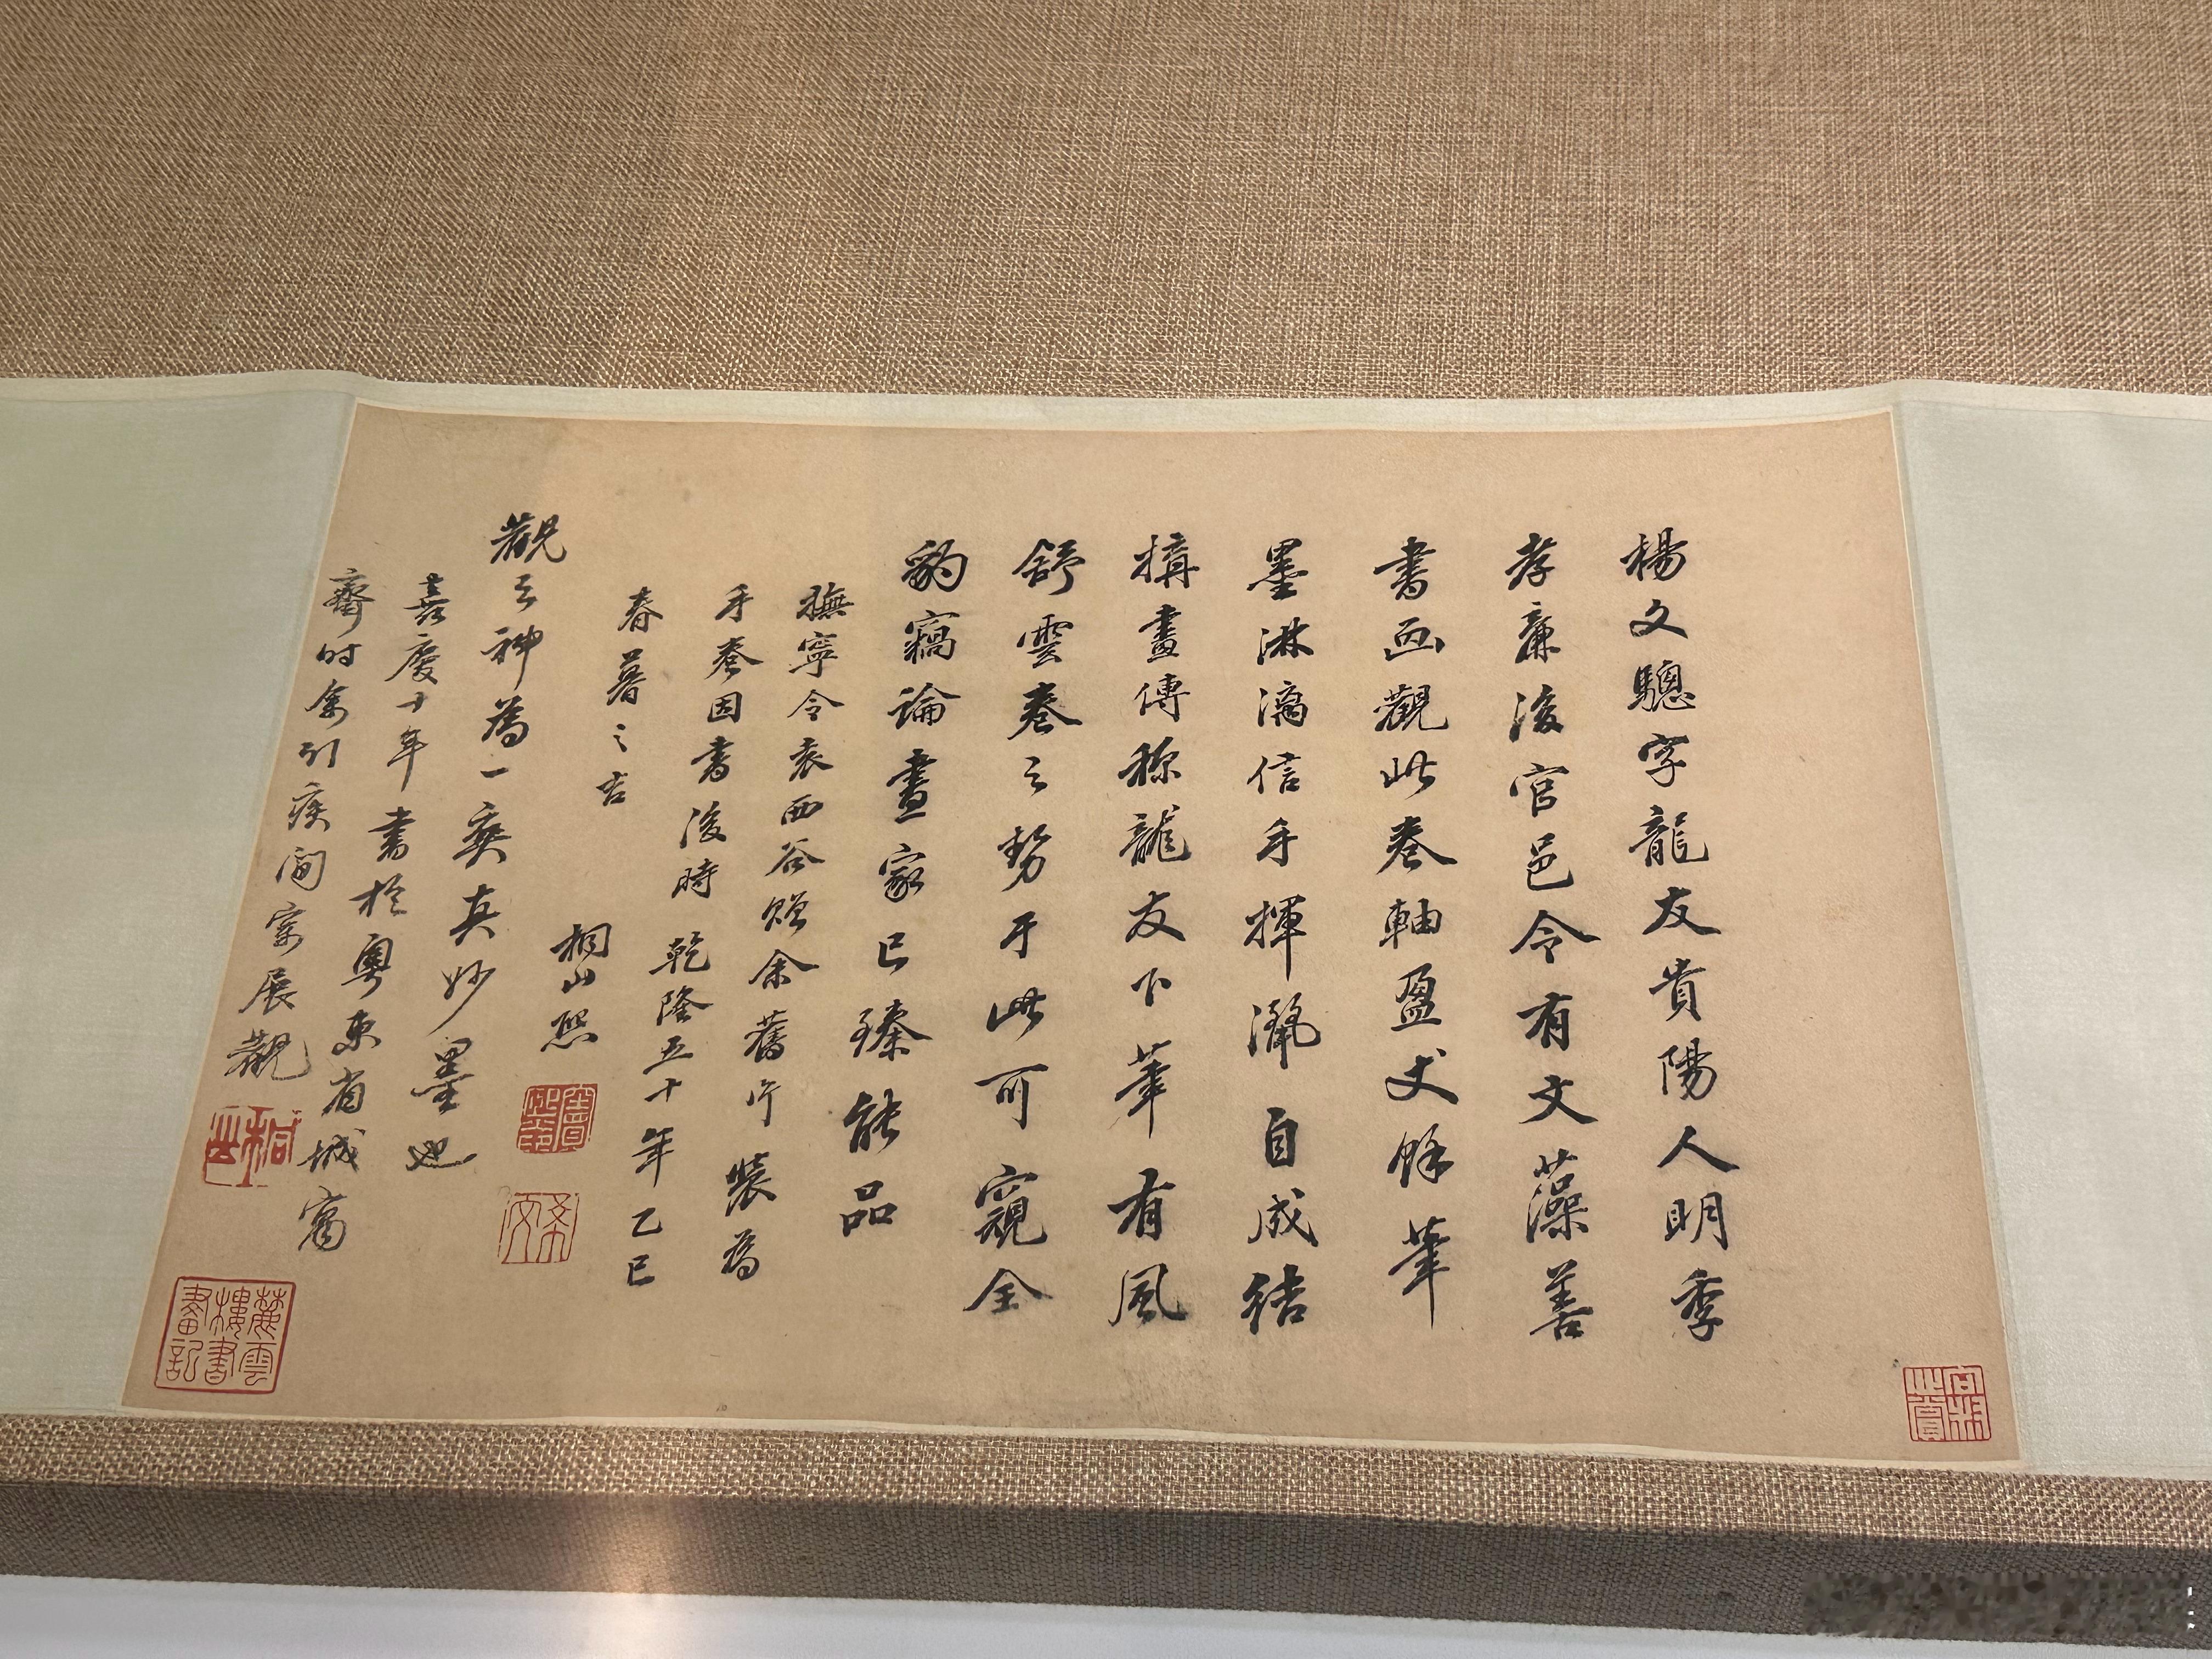 楊文驄字龍友貴陽人明季
孝廉後官邑令有文藻善
書画觀此卷軸盈丈餘筆
墨淋漓信手揮灑自成結
搆畫傳称龍友下筆有風
舒雲卷之势于此可窺全
豹竊論畫家已臻能品
撫寧令袁西谷贈余舊作裝為
手卷因書後時乾隆五十年乙巳
春暮之吉
桐山熙
觀之神為一爽真妙墨也
嘉慶十年書於粵東省城寓
齋时余引疾閒寂展觀
麓雲樓書畫記